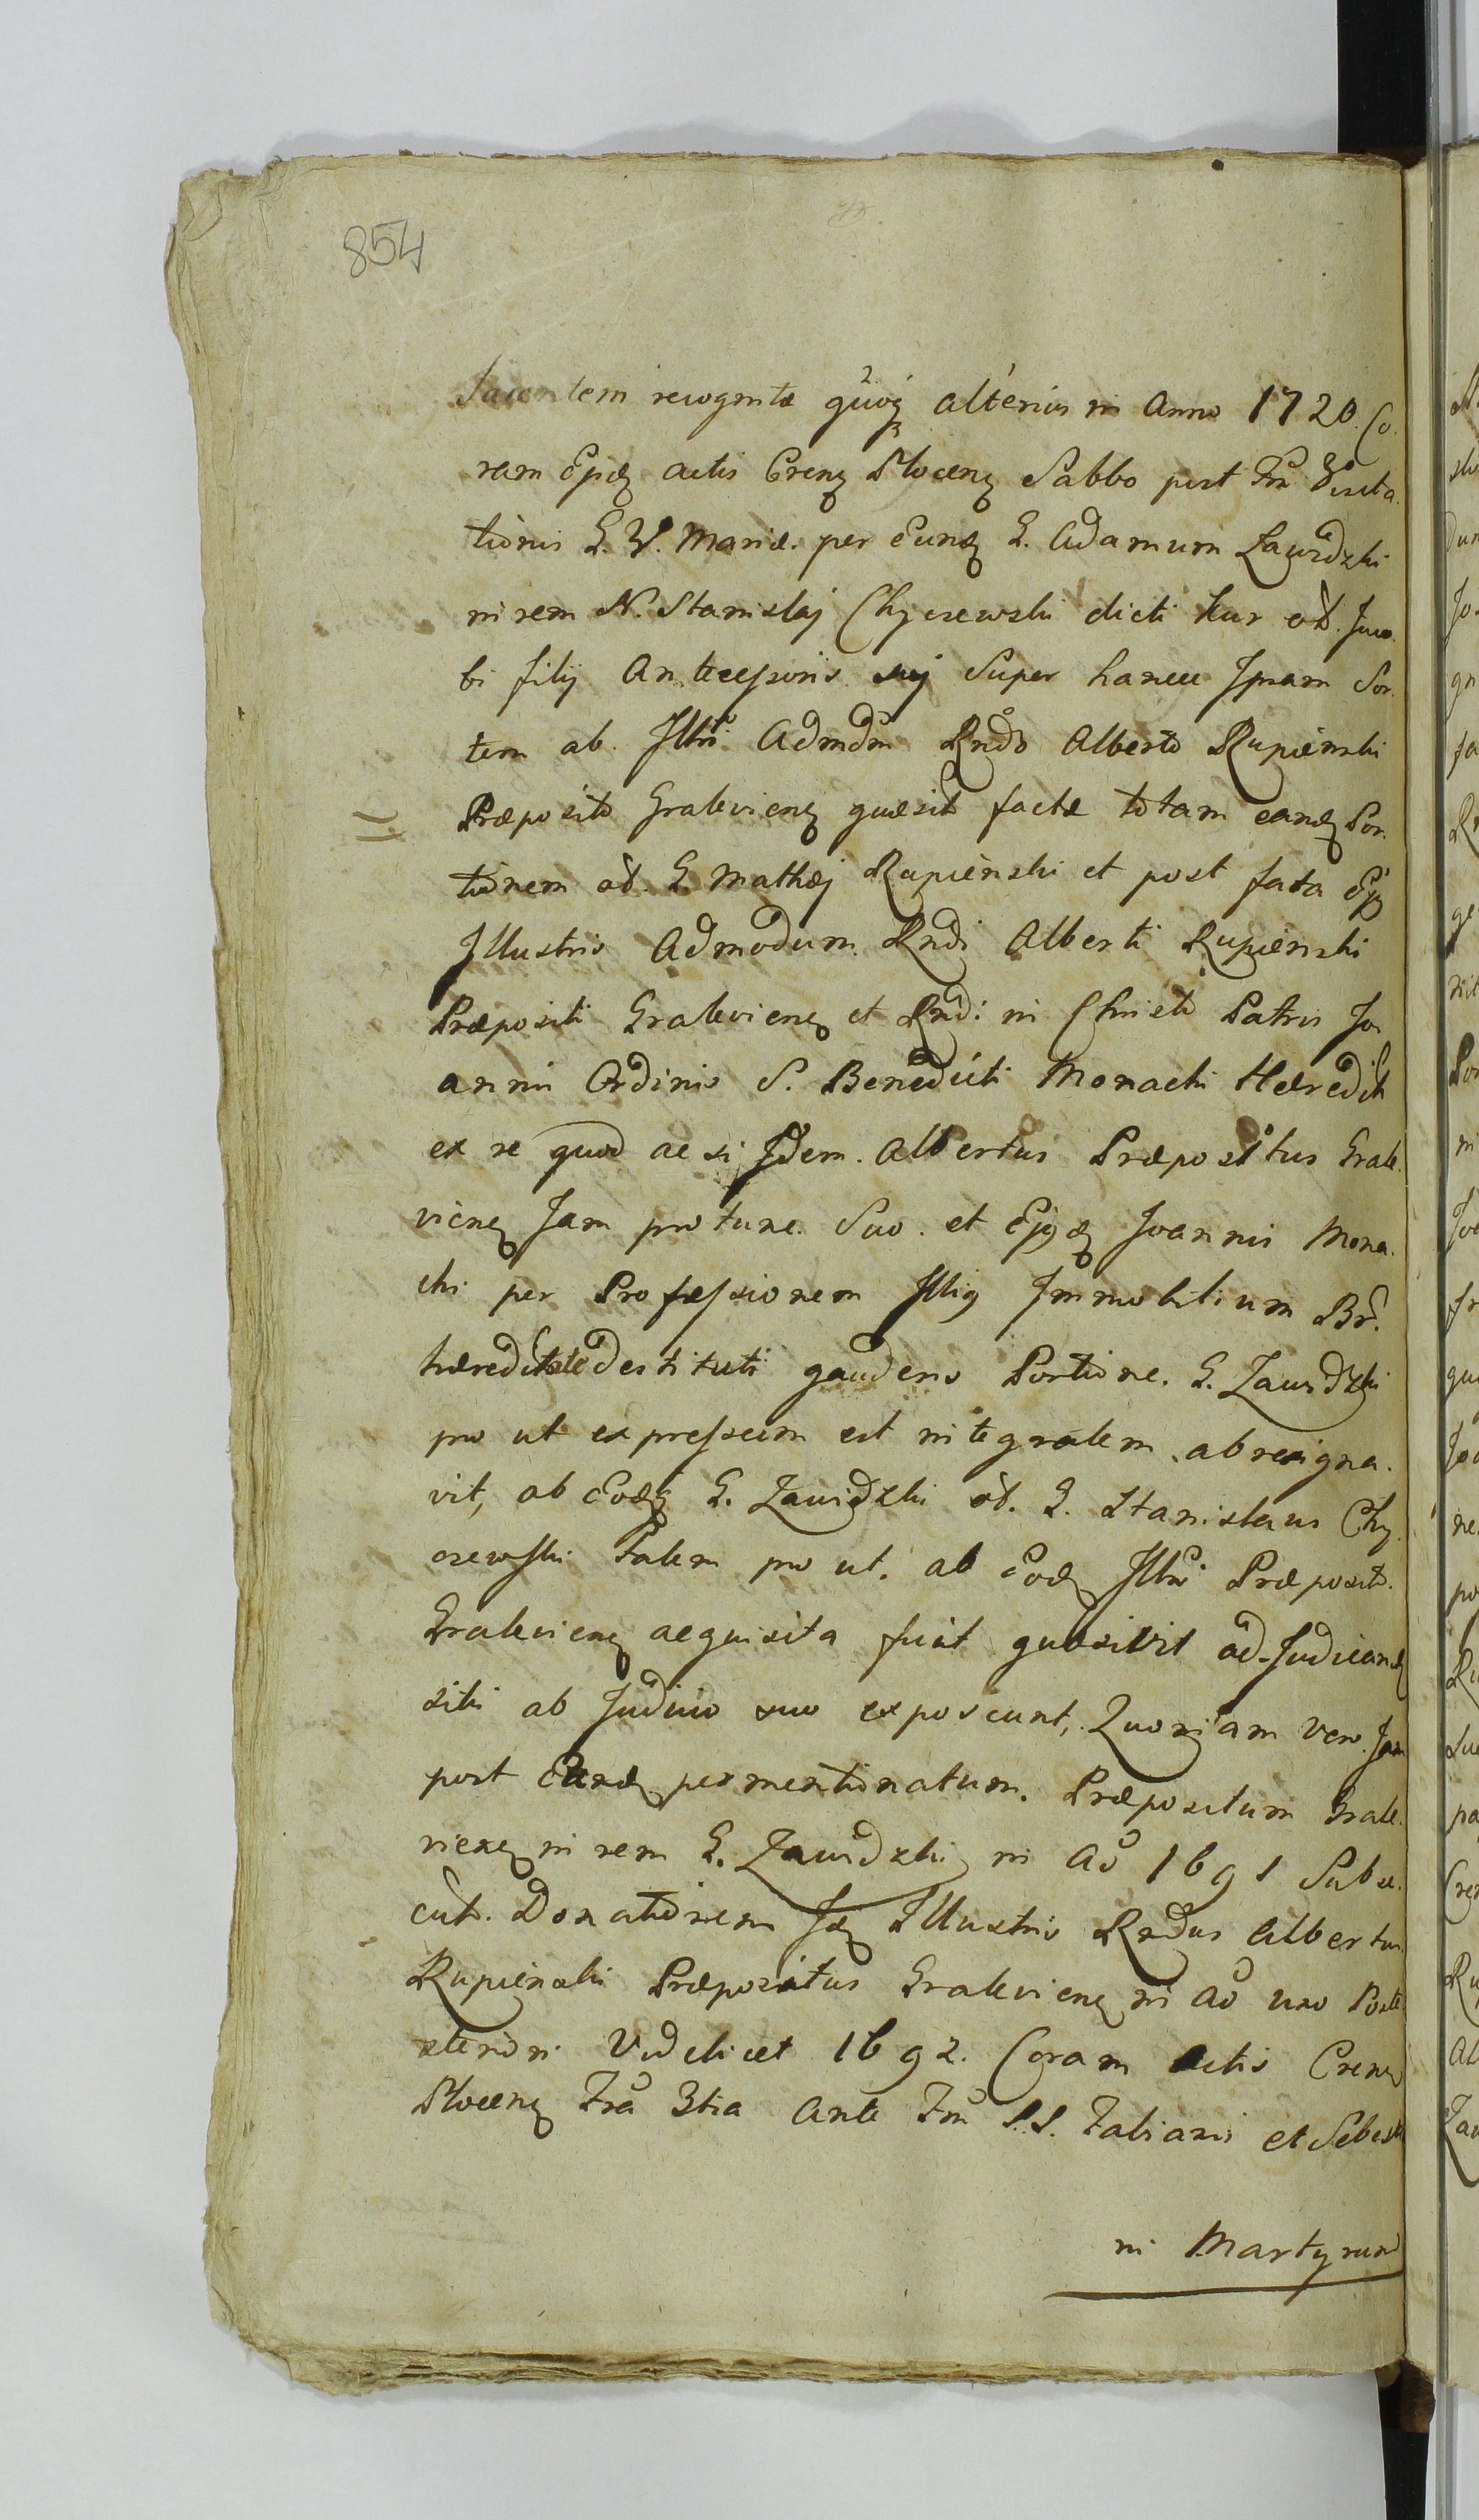 854
Jacentem recognitæ quoq alterius in Anno 1720. Co.
ram Ejsdq actis Crenq Plocenq Sabbo post Fm Visita.
tionis B. V. Mariæ. per Eundq G. Adamum Zawidzki
in rem N. Stanislaj Chyczewski dicti Kur od. Jaco.
bi filij Antecessoris suj Super hancce Ipsam Sor.
tem ab Illri Admdm Rndo Alberto Rupienski
Præposito Gralevienq quæsit factæ totam eandq Por.
tionem od. G. Mathej Rupienski et post fata Ejq
Illustris Admodum. Rndi Alberti Rupienski
Præpositi Gralevienq et Rndi in Christo Patris Jo
annis Ordinis S. Benedicti Monachi Hæredit
ex re quod ac si Idem. Albertus Præpositus Grale.
vienq Jam pro tunc. Suo. et Ejqdq Joannis Mona.
chi per Professionem Illiq Immobilium Br.
hæreditate destituti gaudens Portione. G. Zawidzki
pro ut expressum est integralem abresigna.
vit, ab Eodq G. Zawidzki od. G. Stanislaus Chy.
czewski talem pro ut. ab Eodq Illri Præposit.
Gralevienq acquisita fuit quæsivit ad Judicandq
sibi ab Judicio suo exposcunt, Quoniam vero Jam
post Eundq permentionatum. Præpositum Grale.
vienq in rem G. Zawidzki in Ao 1691 Subse.
cut. Donationem Idq Illustris Rndus Albertus
Rupienski Præpositus Gralevienq in Ao uno Poste
steriori Videlicet 1692. Coram Actis Crenq
Plocenq Fra 3tia Ante Fm S.S. Fabiani et Sebesti
ni Martyrum